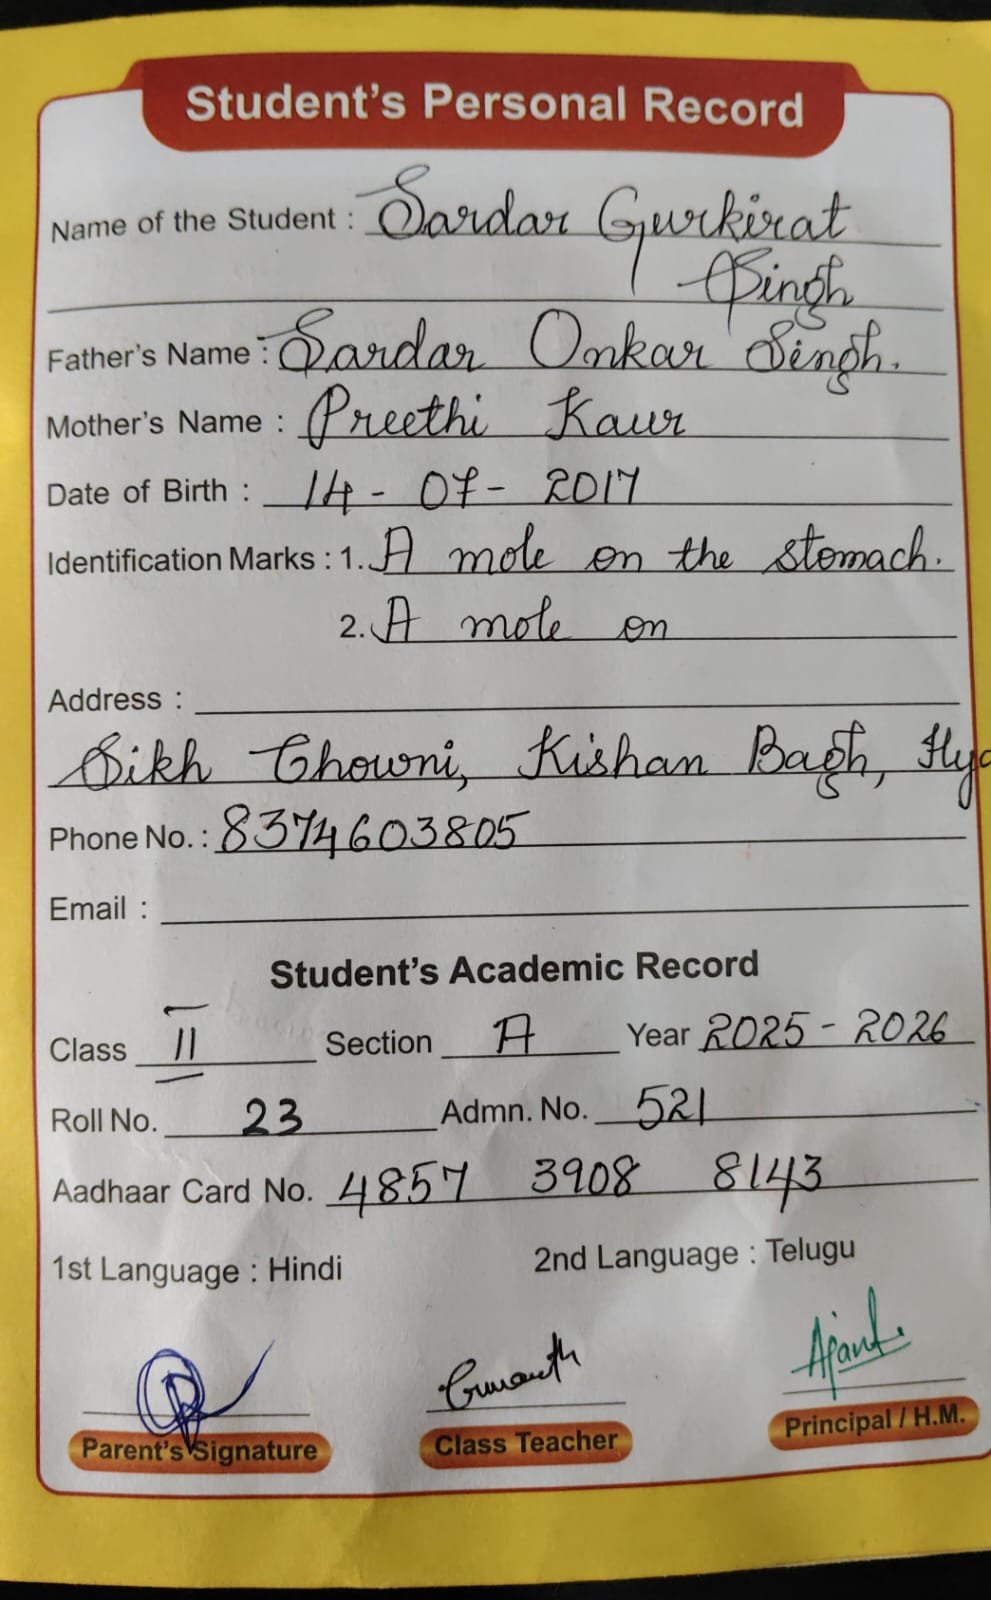 Student's Personal Record
Name of the Student : Sardar Gurkirat
Singh
Father's Name : Sardar Onkar Singh.
Mother's Name : Preethi Kaur
Date of Birth : 14 - 07 - 2017
Identification Marks : 1. A mole on the stomach.
2. A mole on
Address :
Sikh Chowni, Kishan Bagh, Hyd
Phone No. : 8374603805
Email :
Student's Academic Record
Class II Section A Year 2025 - 2026
Roll No. 23 Admn. No. 521
Aadhaar Card No. 4857 3908 8143
1st Language : Hindi 2nd Language : Telugu
Parent's Signature Class Teacher Principal / H.M.